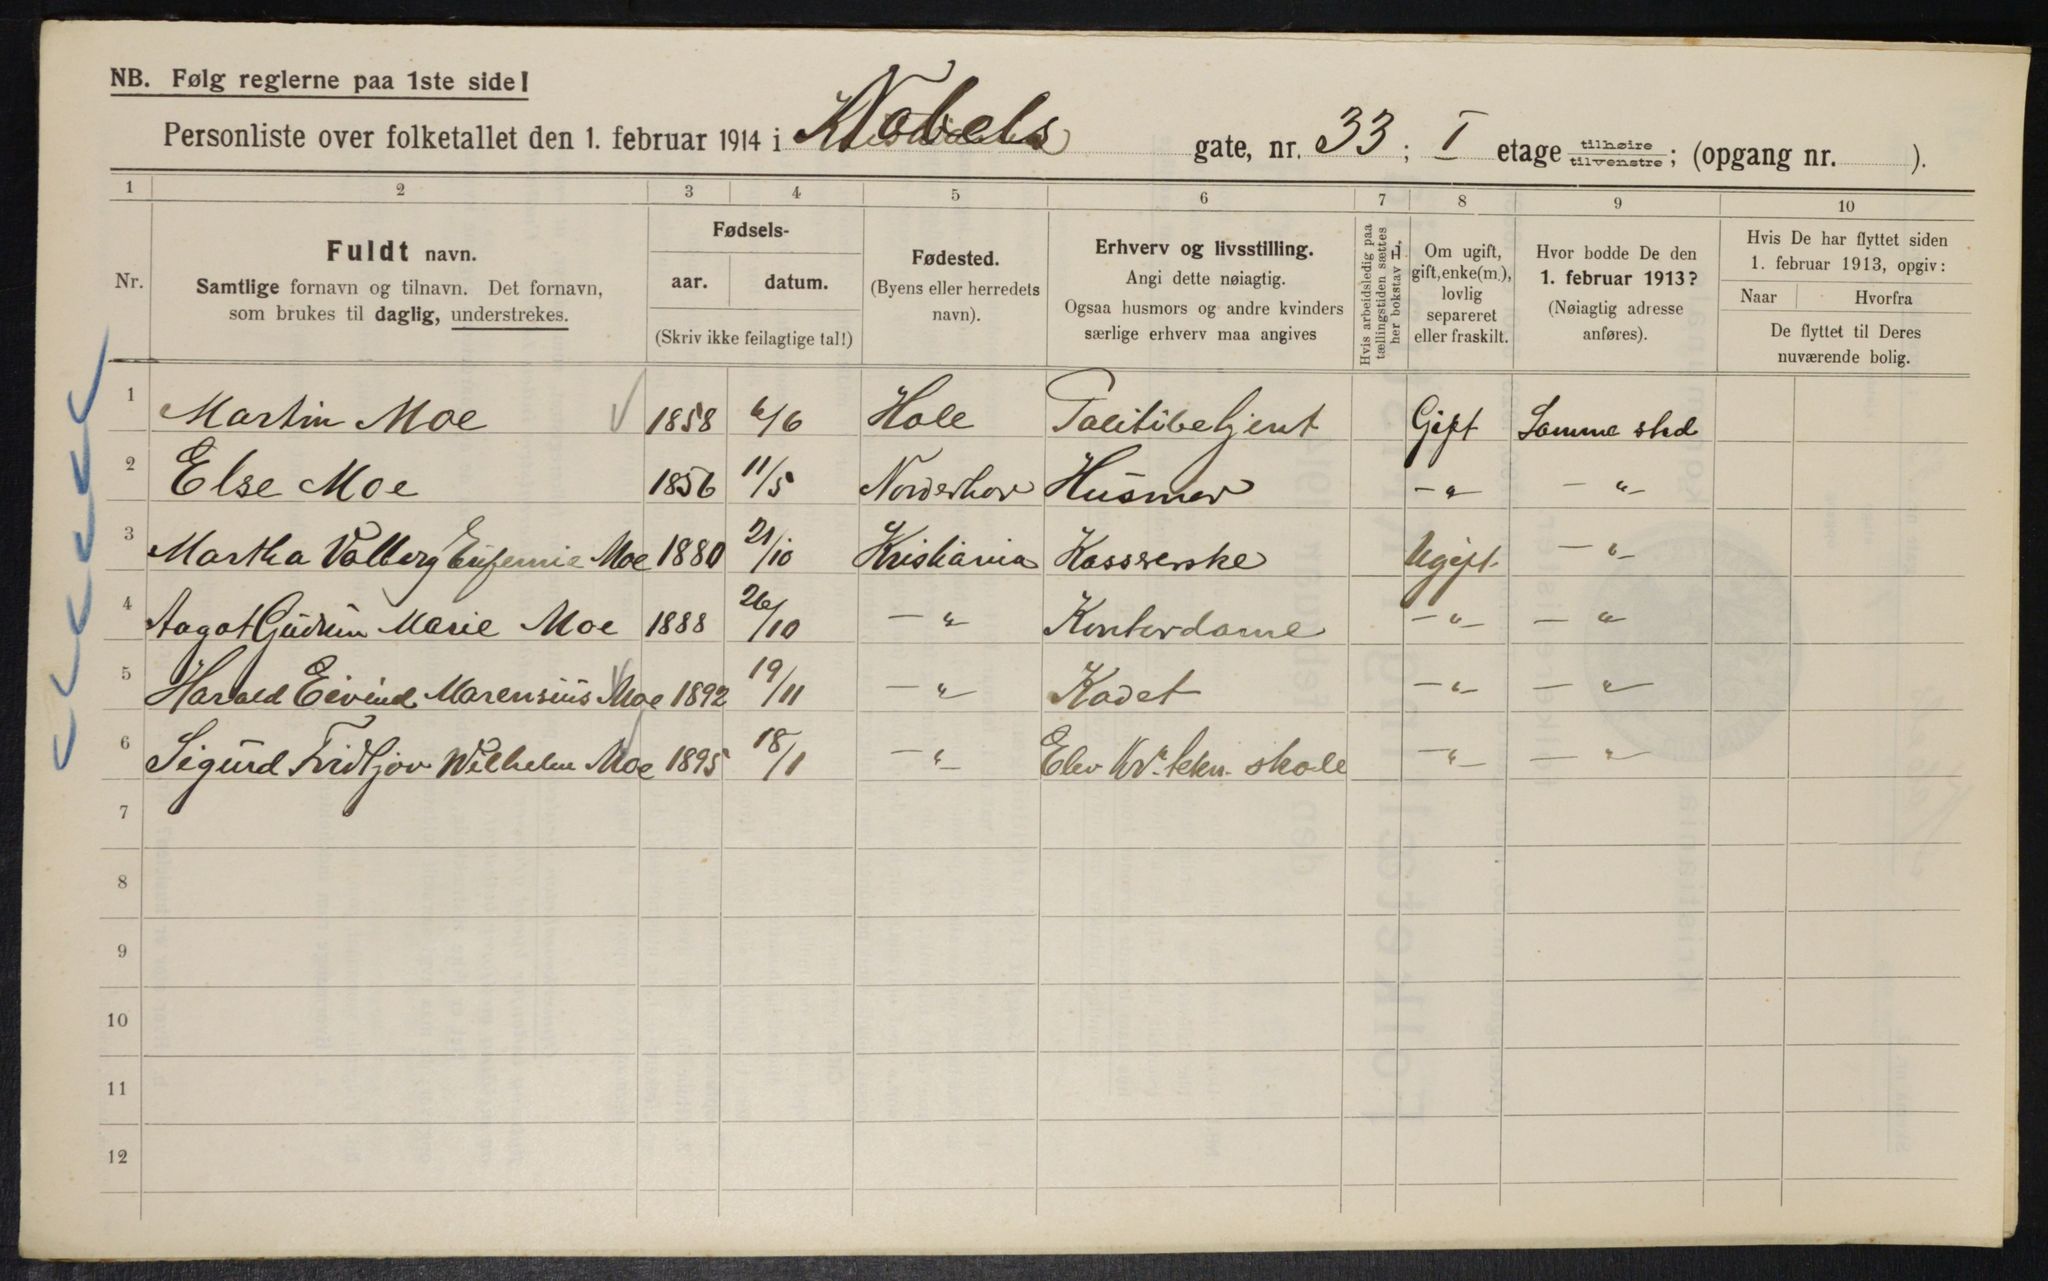 NB. Følg reglerne paa 1ste side!
Personliste over folketallet den 1. februar 1914 i Nobels gate, nr. 33; I etage tilhøire tilvenstre; (opgang nr. ).
1 2 3 4 5 6 7 8 9 10
Nr.
Fuldt navn.
Samtlige fornavn og tilnavn. Det fornavn,
som brukes til daglig, understrekes.
Fødsels-
aar. datum.
(Skriv ikke feilagtige tal!)
Fødested.
(Byens eller herredets
navn).
Erhverv og livsstilling.
Angi dette nøiagtig.
Ogsaa husmors og andre kvinders
særlige erhverv maa angives
Hvis arbeidsledig paa
tællingstiden sættes
her bokstav L.
Om ugift,
gift, enke(m.),
lovlig
separeret
eller fraskilt.
Hvor bodde De den
1. februar 1913?
(Nøiagtig adresse
anføres).
Hvis De har flyttet siden
1. februar 1913, opgiv:
Naar Hvorfra
De flyttet til Deres
nuværende bolig.
1 Martin Moe 1858 6/6 Hole Politibetjent Gift Samme sted
2 Else Moe 1856 11/5 Norderhov Husmor -„- -„-
3 Martha Valborg Eufemie Moe 1880 21/10 Kristiania Kassererske Ugift -„-
4 Aagot Gudrun Marie Moe 1888 26/10 -„- Kontordame -„- -„-
5 Harald Eivind Marensius Moe 1892 19/11 -„- Kadet -„- -„-
6 Sigurd Fridtjov Wilhelm Moe 1895 18/1 -„- Elev Kr.a tekn. skole -„- -„-
7
8
9
10
11
12